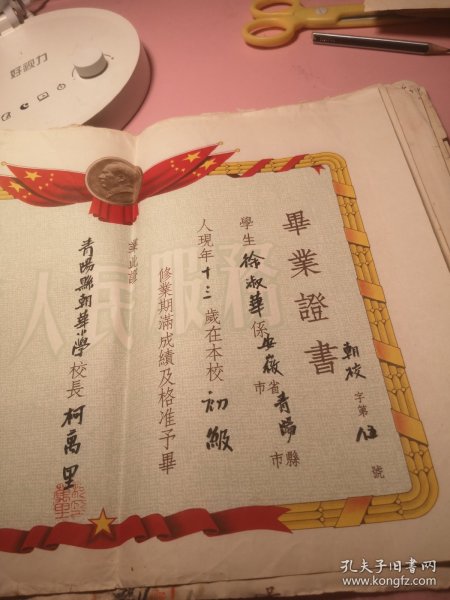 畢業證書
朝校字第伍號
學生徐淑華係安徽省市青陽縣市
人現年十三歲在本校初級
修業期滿成績及格准予畢
業此證
青陽縣朝華小學校長柯高里
人民服務
好視力
孔夫子旧书网
www.kongfz.com